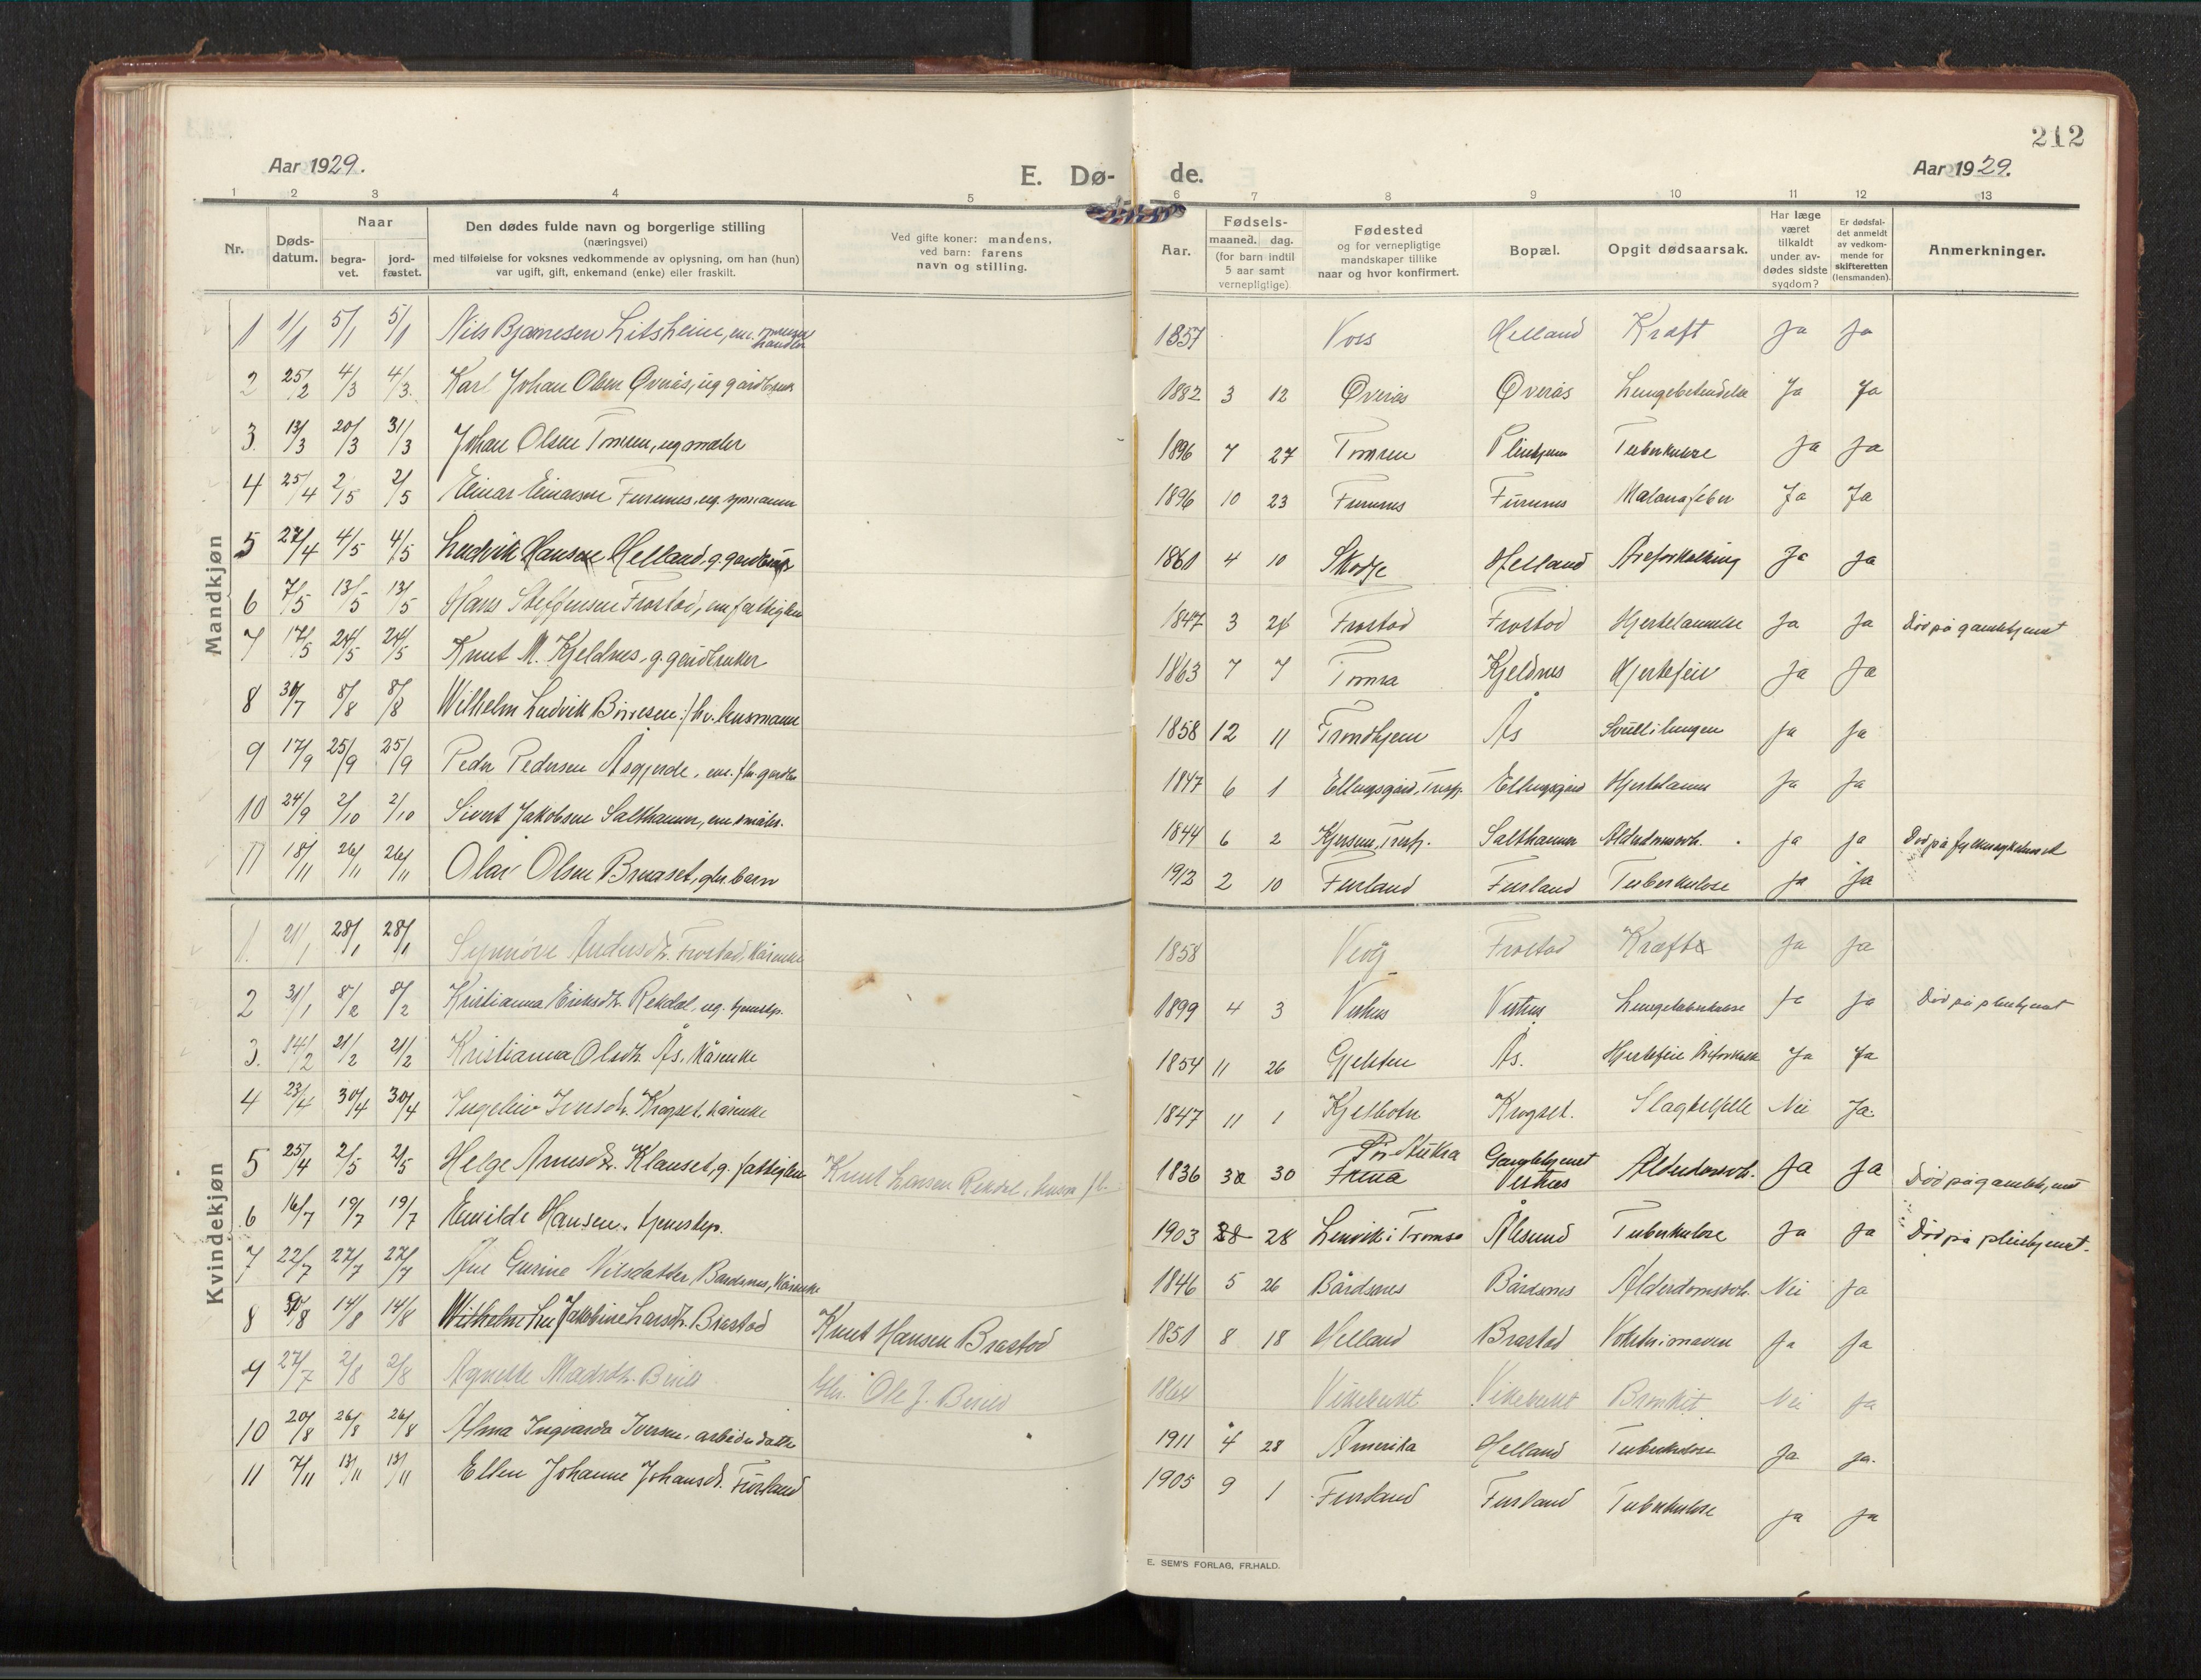 212
Aar 1929.
E. Dø- de.
Aar 1929.
1 2 3 4 5 6 7 8 9 10 11 12 13
Nr.
Døds-
datum.
Naar
begra-
vet.
jord-
fæstet.
Den dødes fulde navn og borgerlige stilling
(næringsvei)
med tilføielse for voksnes vedkommende av oplysning, om han (hun)
var ugift, gift, enkemand (enke) eller fraskilt.
Ved gifte koner: mandens,
ved barn: farens
navn og stilling.
Aar.
Fødsels-
maaned. dag.
(for barn indtil
5 aar samt
vernepligtige)
Fødested
og for vernepligtige
mandskaper tillike
naar og hvor konfirmert.
Bopæl.
Opgit dødsaarsak.
Har læge
været
tilkaldt
under av-
dødes sidste
sygdom?
Er dødsfal-
det anmeldt
av vedkom-
mende for
skifteretten
(lensmanden).
Anmerkninger.
Mandkjøn
1 1/1 5/1 5/1 Nils Litsheim, em. 1857 Voss Helland Kræft Ja Ja
2 25/2 4/3 4/3. Karl Johan Olsen Øverås, ug gårdbruk 1882 3 12 Øverås Øverås Lungebetendelse Ja Ja
3. 13/3 20/3 31/3 Johan Olsen Tomren, ug maler 1896 7 27 Tomren Pleiehjem Tuberkulose Ja Ja
4 25/4 2/5 2/5 Einar Einarsen Furunes, ug. sjømann 1896 10 23 Furunes Furunes Malariafeber Ja Ja
5 27/4 4/5 4/5 Ludvik Hansen Helland, g. gardbruk 1861 4 10 Skodje Helland Åreforkalkning Ja Ja
6 7/5 13/5 13/5 Hans Steffensen Frostad, em fattiglem 1847 3 Frostad Frostad Hjertelammelse Ja Ja Død på gamlehjemmet
7 17/5 24/5 24/5 Knut M. Kjeldnes, g. gårdbruker 1863 7 7 Tomra Kjeldnes Hjertefeil Ja Ja
8 30/7 8/8 8/8 Wilhelm Ludvik Birresen: fhv. lensmann 1858 12 11 Trondhjem Ås Svull i lungen Ja Ja
9 17/9 25/9 25/9 Peder Pedersen Åsgjerde, em. fhv. gardbr 1847 6 1 Ellingsgård, Tresfj. Ellingsgård Hjertelamm Ja Ja
10 24/9 2/10 2/10 Sivert Jakobsen Salthammer, em småbr. 1844 6 2 Kjersem, Tresfj. Salthammer Alderdomssvh. Ja Ja Død på fylkessykehuset
11 18/11 26/11 26/11 Olav Olsen Bruaset, gbr. barn 1912 2 10 Furland Furland Tuberkulose Ja Ja
Kvindekjøn
1. 21/1 28/1 28/1 Synnøve Andersdtr. Frostad, kårenke 1858 Vevg Frostad Kræft Ja Ja
2 31/1 8/2 8/2 Kristianna Eriksdtr. Rekdal, ug. tjenestep. 1899 4 3 Vestnes Vestnes Lungetuberkulose Ja Ja Død på pleiehjemmet
3. 14/2 21/2 21/2 Kristianna Olsdtr. Ås. kårenke 1854 11 26 Gjelsten Ås. Hjertefeil Åreforkalk Ja Ja
4 23/4 30/4 30/4 Ingeliv Iversdtr. Krogset, kårenke 1847 11 1 Kjelbotn Krogset. Slagtilfelle Nei Ja.
5 25/4 2/5 2/5 Helge Arnesdtr. Klauset, g. fattiglem Knut Larsen Rekdal, husm. 1836 30 Aukra Fræna Gamlehjemmet Vestnes Alderdomssvh. Ja Ja Død på gamlehjemmet
6 16/7 19/7 19/7 Emilde Hansen. tjenestep. 1903 28 Lenvik i Tromsø Ålesund Tuberkulose Ja Ja Død på pleiehjemmet.
7 22/7 27/7 27/7 Ane Gurine Nilsdatter, Bårdsnes, kårenke 1846 5 26 Bårdsnes Bårdsnes Alderdomssvh. Nei Ja
8 14/8 14/8 Jakobine Larsdtr. Brastad Knut Hansen Brastad 1851 8 18 Helland Brastad Vekster i maven Ja Ja
9 27/7 2/8 2/8 Agnette Madsdtr. Ole J. 1864 Vikebukt Vikebukt Bronkit Nei Ja
10 20/8 26/8 26/8 Alma Ingvarda Iversen, arbeiderdatter 1911 4 28 Amerika Helland Tuberkulose Ja Ja.
11 7/11 13/11 13/11 Ellen Johanne Johansdt. Furland 1905 9 1 Furland Furland Tuberkulose Ja Ja
E. SEM'S FORLAG, FR.HALD.